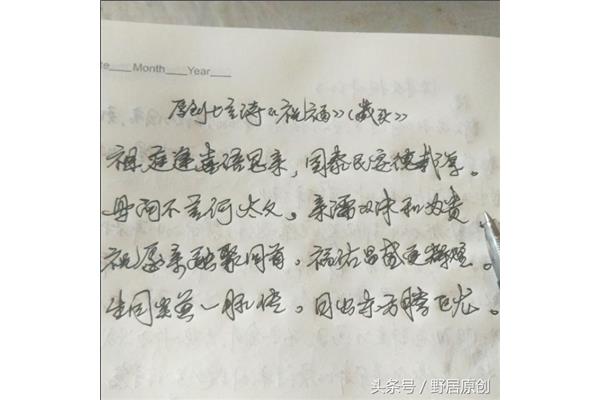 te___Month___Year___
原创七言诗《祝福》(藏头)
祖庭逢喜语, 国泰民安德载厚。
母问不言何太久。亲 双 和为贵。
祝愿亲融聚同首。福佑昌盛更辉煌。
生同炎黄一脉情。日出东方腾飞龙。
头条号 / 野居原创